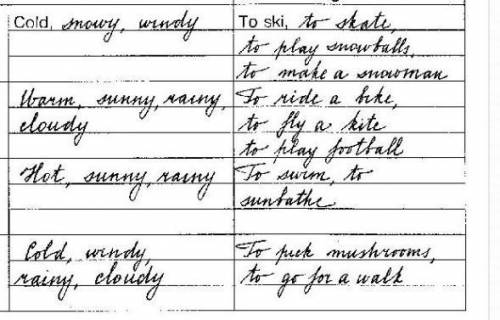 Cold, snowy, windy
To ski, to skate,
to play snowballs,
to make a snowman
Warm, sunny, rainy,
cloudy
To ride a bike,
to fly a kite
to play football
Hot, sunny, rainy
To swim, to
sunbathe
Cold, windy,
rainy, cloudy
To pick mushrooms,
to go for a walk